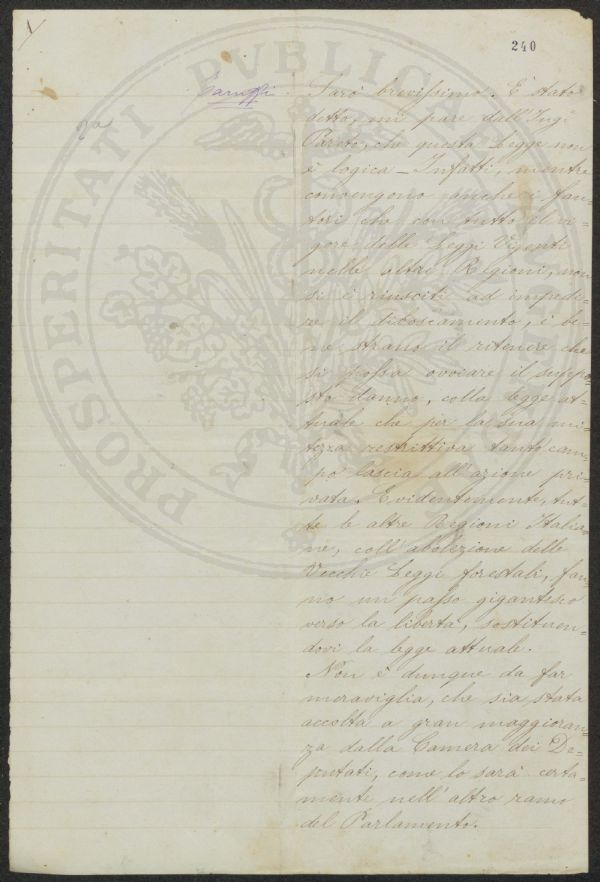 240
1
Caruzzi.
Sarò brevissimo. È stato
detto, mi pare dall'Ing.
Pareto, che questa Legge non
è logica — Infatti, mentre
convengono anche i fau=
tori che con tutto il ri=
gore delle Leggi Vigenti
nelle altre Regioni, non
si è riusciti ad impedi=
re il diboscamento, è be=
ne strano il ritenere che
si possa ovocare il suppo=
sto danno, colla legge at=
tuale che per la sua mi=
tezza restrittiva tanto cam=
po lascia all'azione pri=
vata. Evidentemente, tut=
te le altre Regioni Italia=
ne, coll'abolizione delle
Vecchie Leggi forestali, fan=
no un passo gigantesco
verso la libertà, sostituen=
dovi la legge attuale.
Non è dunque da far
meraviglia, che sia stata
accolta a gran maggioran=
za dalla Camera dei De=
putati, come lo sarà certa=
mente nell'altro ramo
del Parlamento.
PROSPERITATI PUBLICAE AUGENDAE